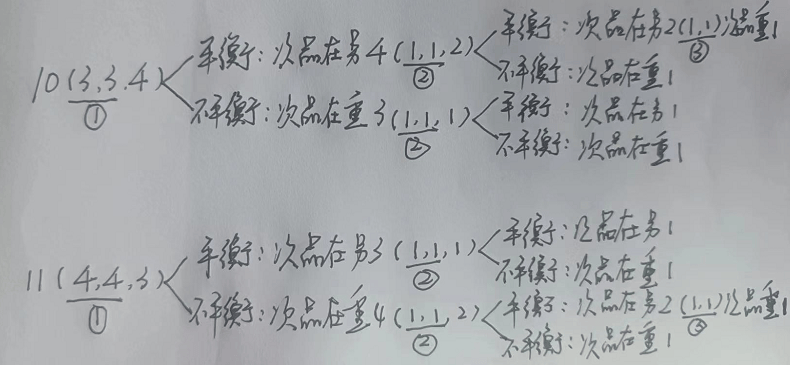 平衡:次品在另2(1,1)次品重1
平衡:次品在另4(1,1,2)
③
②
不平衡:次品在重1
10(3,3.4)
①
平衡:次品在另1
不平衡:次品在重3(1,1,1)
②
不平衡:次品在重1
平衡:次品在另1
平衡:次品在另3(1,1,1)
②
不平衡:次品在重1
11(4,4,3)
①
平衡:次品在另2(1,1)次品重1
不平衡:次品在重4(1,1,2)
③
②
不平衡:次品在重1